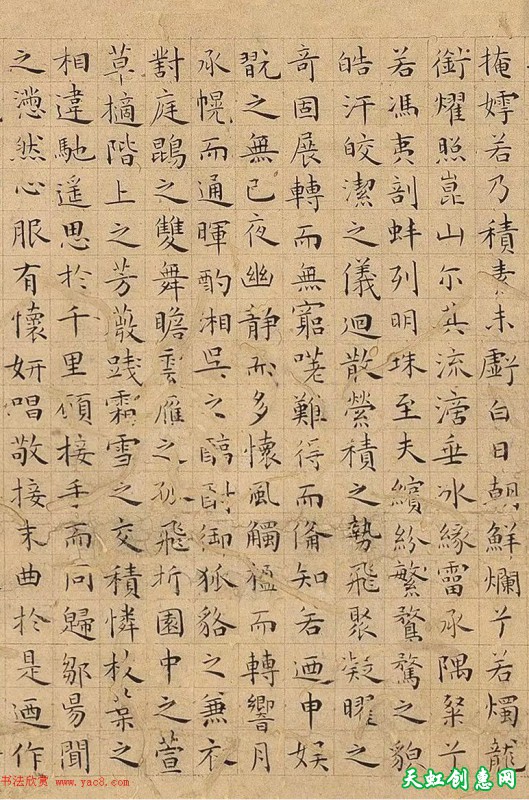 掩嫮若乃積素未虧白日朝鮮爛兮若燭龍
銜耀照崑山尔其流滴垂冰緣霤承隅粲兮
若馮夷剖蚌列明珠至夫繽紛繁騖騖之貌
皓汗皎潔之儀迴散縈積之勢飛聚凝曜之
奇固展轉而無窮嗟難得而俻知若迺申娱
翫之無已夜幽静而多懷風觸楹而轉響月
承幌而通暉酌湘吳之醇酎御狐貉之兼衣
對庭鵾之雙舞瞻雲雁之孤飛折園中之萱
草摘階上之芳薇踐霜雪之交積憐枝葉之
相違馳遥思於千里願接手而同歸鄒陽聞
之懣然心服有懷妍唱敬接末曲於是迺作
书法欣赏 www.yac8.com
天虹创惠网